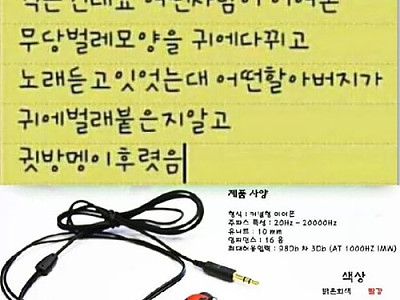 무당벌레모양을 귀에다뀌고
노래듣고있엇는대 어떤할아버지가
귀에벌래붙은지알고
귓방멩이후렷음
제품 사양
형식 : 커널형 이어폰
주파스 특성 : 20Hz - 20000Hz
유니트 : 10 mm
임피던스 : 16 옴
98Db 차 3Db (AT 1000HZ 1MW)
색상
밝은회색 빨강